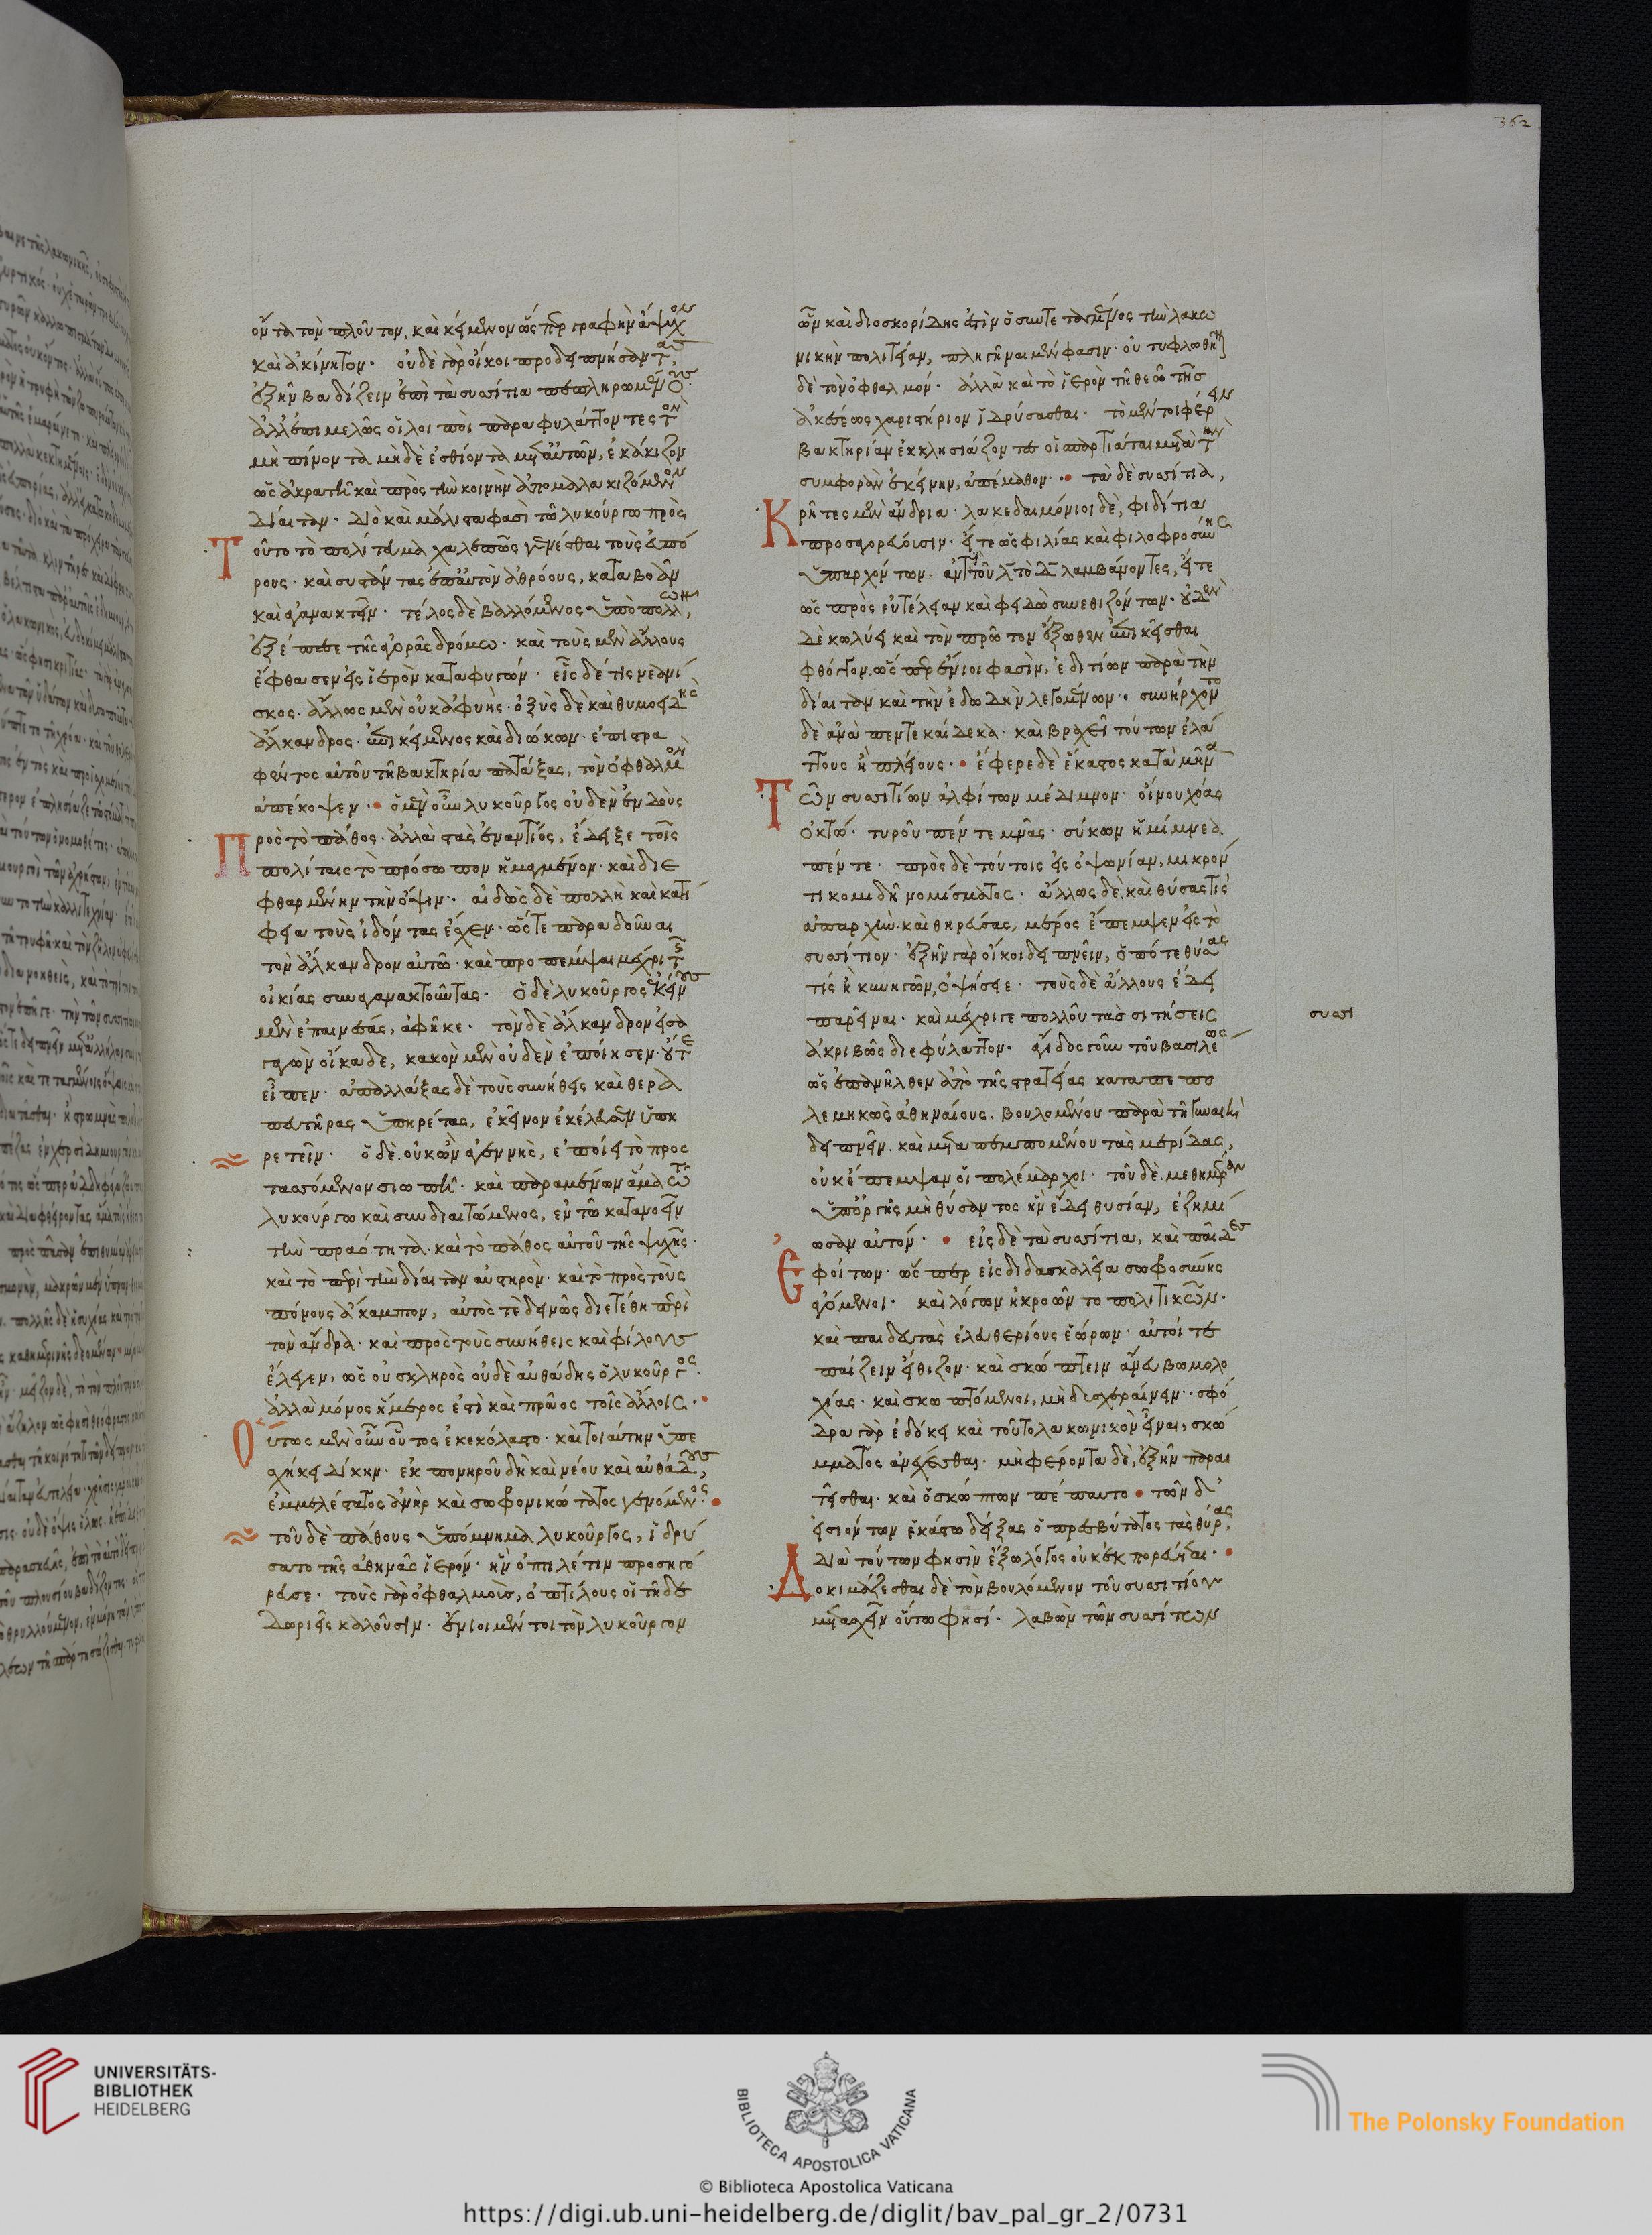 ὄντα τὸν πλοῦτον, καὶ κείμενον ὥσπερ γραφὴν ἄψυχον
καὶ ἀκίνητον· οὐδὲ γὰρ οἴκοι προδειπνήσαντας,
ἐξῆν βαδίζειν ἐπὶ τὰ συσίτια πεπληρωμένους·
ἀλλ' ἐπιμελῶς οἱ λοιποὶ παραφυλάττοντες τὸν
μὴ πίνοντα μηδὲ ἐσθίοντα μετ' αὐτῶν, ἐκάκιζον
ὡς ἀκρατῆ καὶ πρὸς τὴν κοινὴν ἀπομαλακιζόμενον
δίαιταν· διὸ καὶ μάλιστα φασὶ τῷ λυκούργῳ πρὸς
τοῦτο τὸ πολίτευμα χαλεπῶς γενέσθαι τοὺς εὐπό
ρους· καὶ συστάντας ἐπ' αὐτὸν ἀθρόους, καταβοᾶν
καὶ ἀγανακτεῖν· τέλος δὲ βαλλόμενος ὑπὸ πολλῶν,
ἐξέπεσε τῆς ἀγορᾶς δρόμω· καὶ τοὺς μὲν ἄλλους
ἔφθασεν εἰς ἱερὸν καταφυγών· εἷς δέ τις νεανί
σκος ἄλλως μὲν οὐκ ἀφυής· ὀξὺς δὲ καὶ θυμοειδὴς
ἄλκανδρος· ἐπικείμενος καὶ διώκων· ἐπιστρα
φέντος αὐτοῦ τῆ βακτηρία πατάξας, τὸν ὀφθαλμὸν
ἀπέκοψεν· ὁ μὲν οὖν λυκοῦργος οὐδὲν ἐνδοὺς
πρὸς τὸ πάθος· ἀλλὰ στὰς ἐναντίος, ἔδειξε τοῖς
πολίταις τὸ πρόσωπον ἡμαγμένον· καὶ διε
φθαρμένην τὴν ὄψιν· αἰδὼς δὲ πολλὴ καὶ κατή
φεια τοὺς ἰδόντας ἔσχεν· ὥστε παραδοῦναι
τὸν ἄλκανδρον αὐτῶ· καὶ προπέμψαι μέχρι τῆς
οἰκίας συναγανακτοῦντας· ὁ δὲ λυκοῦργος ἐκείνους
μὲν ἐπαινέσας, ἀφῆκε· τὸν δὲ ἄλκανδρον εἰσα
γαγὼν οἴκαδε, κακὸν μὲν οὐδὲν ἐποίησεν οὔτε
εἶπεν· ἀπαλλάξας δὲ τοὺς συνήθεις καὶ θερα
πευτῆρας ὑπηρέτας, ἐκεῖνον ἐκέλευσεν ὑπη
ρετεῖν· ὁ δὲ οὐκ ὢν ἀγεννής, ἐποίει τὸ προς
τασσόμενον σιωπῆ· καὶ παραμένων ἅμα τῶ
λυκούργω καὶ συνδιαιτώμενος, ἐν τῶ κατανοεῖν
τὴν πραότητα· καὶ τὸ πάθος αὐτοῦ τῆς ψυχῆς·
καὶ τὸ περὶ τὴν δίαιταν αὐστηρὸν· καὶ τὸ πρὸς τοὺς
πόνους ἄκαμπτον, αὐτός τε δεινῶς διετέθη περὶ
τὸν ἄνδρα· καὶ πρὸς τοὺς συνήθεις καὶ φίλους
ἔλεγεν, ὡς οὐ σκληρὸς οὐδὲ αὐθάδης ὁ λυκοῦργος·
ἀλλὰ μόνος ἥμερος ἐστὶ καὶ πρᾶος τοῖς ἄλλοις·
οὕτως μὲν οὖν οὗτος ἐκεκόλαστο· καὶ τοιαύτην ὑπε
σχήκει δίκην· ἐκ πονηροῦ δὴ καὶ νέου καὶ αὐθάδους,
ἐμμελέστατος ἀνὴρ καὶ σωφρονικώτατος γενόμενος·
τοῦ δὲ πάθους ὑπόμνημα λυκοῦργος, ἱδρύ
σατο τῆς ἀθηνᾶς ἱερόν· ἣν ὀπτιλέτιν προσηγό
ρευσε· τοὺς γὰρ ὀφθαλμοὺς, ὀπτίλους οἱ τῆδε
δωριεῖς καλοῦσιν· ἔνιοι μέντοι τὸν λυκοῦργον
ὧν καὶ διοσκορίδης ἐστὶν ὁ συντεταγμένος τὴν λακω
νικὴν πολιτείαν, πληγῆναι μέν φασιν· οὐ τυφλωθῆναι
δὲ τὸν ὀφθαλμόν· ἀλλὰ καὶ τὸ ἱερὸν τῆ θεῶ τῆς
ἀκέσεως χαριστήριον ἱδρύσασθαι· τὸ μέντοι φέρειν
βακτηρίαν ἐκκλησιάζοντες οἱ σπαρτιάται μετὰ τὴν
συμφορὰν ἐκείνην, ἀπέμαθον· τὰ δὲ συσίτια,
κρῆτες μὲν ἄνδρια· λακεδαιμόνιοι δὲ, φιδίτια
προσαγορεύουσιν· εἴτε ὡς φιλίας καὶ φιλοφροσύνης
ὑπαρχόντων· ἀντὶ τοῦ λ τὸ δ λαμβάνοντες, εἴτε
ὡς πρὸς εὐτέλειαν καὶ φειδὼ συνεθιζόντων· οὐδὲν
δὲ κωλύει καὶ τὸν πρῶτον ἔξωθεν ἐπικεῖσθαι
φθόγγον, ὥσπερ ἔνιοι φασὶν, ἐδιτίων παρὰ τὴν
δίαιταν καὶ τὴν ἐδωδὴν λεγομένων· συνήρχοντο
δὲ ἀνὰ πεντεκαίδεκα· καὶ βραχεῖ τούτων ἐλάτ
τους ἢ πλείους· ἔφερε δὲ ἕκαστος κατὰ μῆνα
τῶν συσσίτιων ἀλφίτων μέδιμνον· οἴνου χόας
ὀκτώ· τυροῦ πέντε μνᾶς· σύκων ἡμίμνεα
πέντε· πρὸς δὲ τούτοις εἰς ὀψωνίαν, μικρόν
τι κομιδῆ νομίσματος· ἄλλως δὲ καὶ θύσας τίς
ἀπαρχὴν· καὶ θηρεύσας, μέρος ἔπεμψεν εἰς τὸ
συσσίτιον· ἐξῆν γὰρ οἴκοι δειπνεῖν, ὁπότε θύσας
τίς ἢ κυνηγῶν, ὀψήσειε· τοὺς δὲ ἄλλους ἔδει
παρεῖναι· καὶ μέχρι γε πολλοῦ τὰς σιτήσεις
ἀκριβῶς διεφύλαττον· ἄγιδος γοῦν τοῦ βασιλέως
ὡς ἐπανῆλθεν ἀπὸ τῆς στρατείας καταπεπο
λεμηκὼς ἀθηναίους. βουλομένου παρὰ τῆ γυναικὶ
δειπνεῖν. καὶ μεταπεμπομένου τὰς μερίδας,
οὐκ ἔπεμψαν οἱ πολέμαρχοι· τοῦ δὲ μεθημέραν
ὑπ' ὀργῆς μὴ θύσαντος ἣν ἔδει θυσίαν, ἐζημί
ωσαν αὐτόν· εἰς δὲ τὰ συσσίτια, καὶ παῖδες
ἐφοίτων· ὥσπερ εἰς διδασκαλεῖα σωφροσύνης
ἀγόμενοι· καὶ λόγων ἠκροῶντο πολιτικῶν·
καὶ παιδευτὰς ἐλευθερίους ἑώρων· αὐτοί τε
παίζειν εἴθιζον· καὶ σκώπτειν ἄνευ βωμολο
χίας· καὶ σκωπτόμενοι, μὴ δυσχεραίνειν· σφό
δρα γὰρ ἐδόκει καὶ τοῦτο λακωνικὸν εἶναι, σκώ
μματος ἀνέχεσθαι· μὴ φέροντα δὲ, ἐξῆν παραι
τεῖσθαι· καὶ ὁ σκώπτων πέπαυτο· τῶν δ'
εἰσιόντων ἑκάστω δείξας ὁ πρεσβύτατος τὰς θύρας,
διὰ τούτων φησὶν ἔξω λόγος οὐκ ἐκπορεύεται·
δοκιμάζεσθαι δὲ τὸν βουλόμενον τοῦ συσσιτίου
μετασχεῖν οὕτω φησί· λαβὼν τῶν συσσίτων
συσσι
362
UNIVERSITÄTS-
BIBLIOTHEK
HEIDELBERG
BIBLIOTECA APOSTOLICA VATICANA
The Polonsky Foundation
© Biblioteca Apostolica Vaticana
https://digi.ub.uni-heidelberg.de/diglit/bav_pal_gr_2/0731